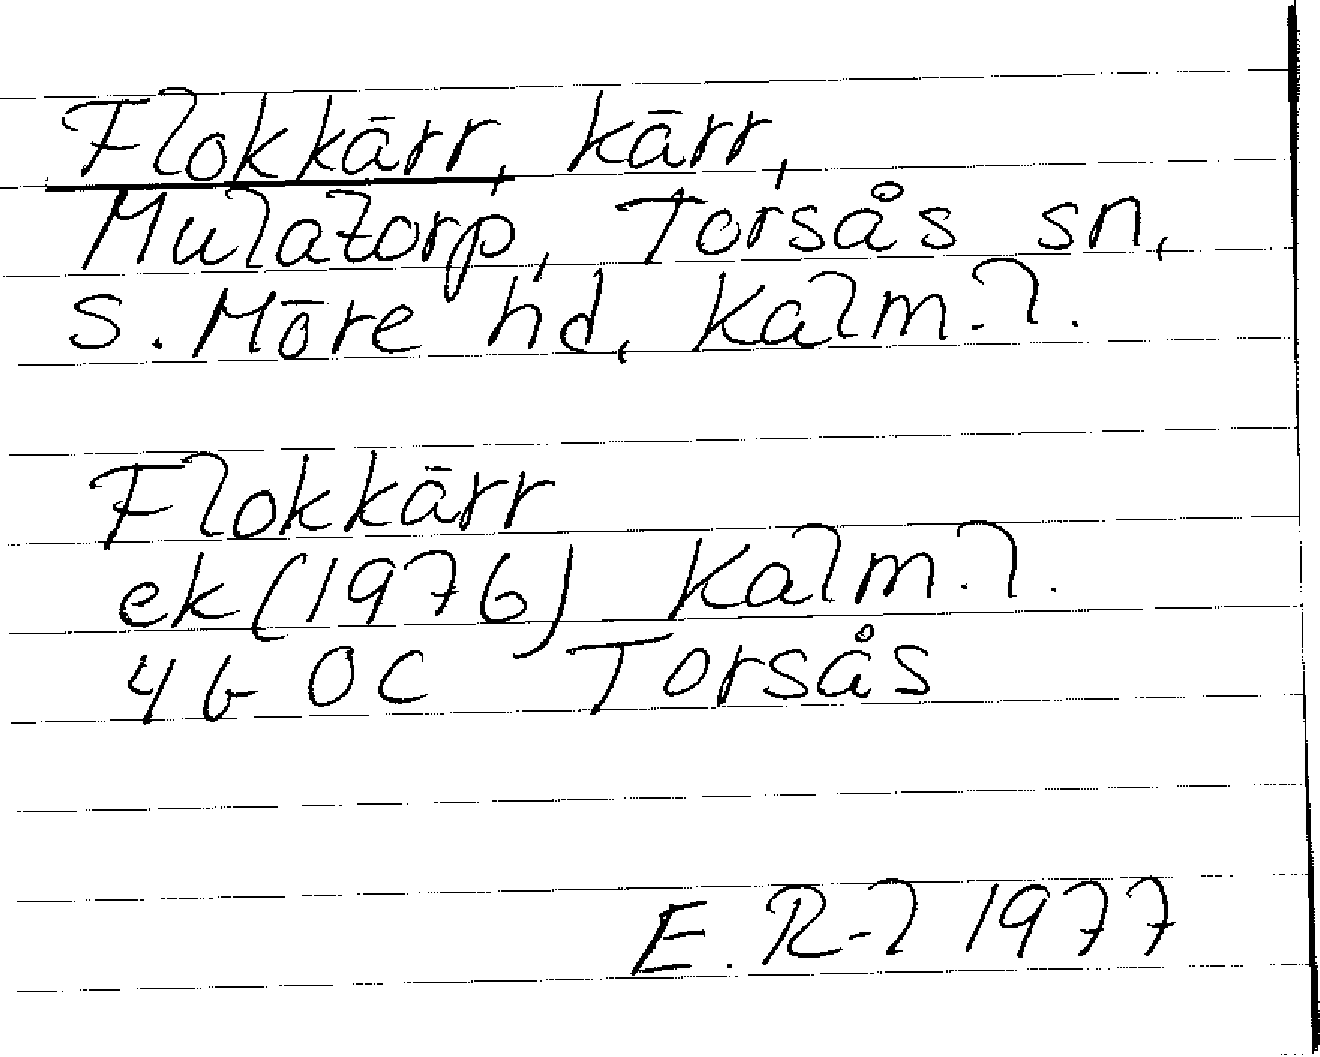 Flokkärr, kärr,
Mulatorp, Torsås sn,
S. Möre hd, Kalm. l.
Flokkärr
ek (1976) Kalm. l.
4 G 0 c Torsås
E. R-l 1977